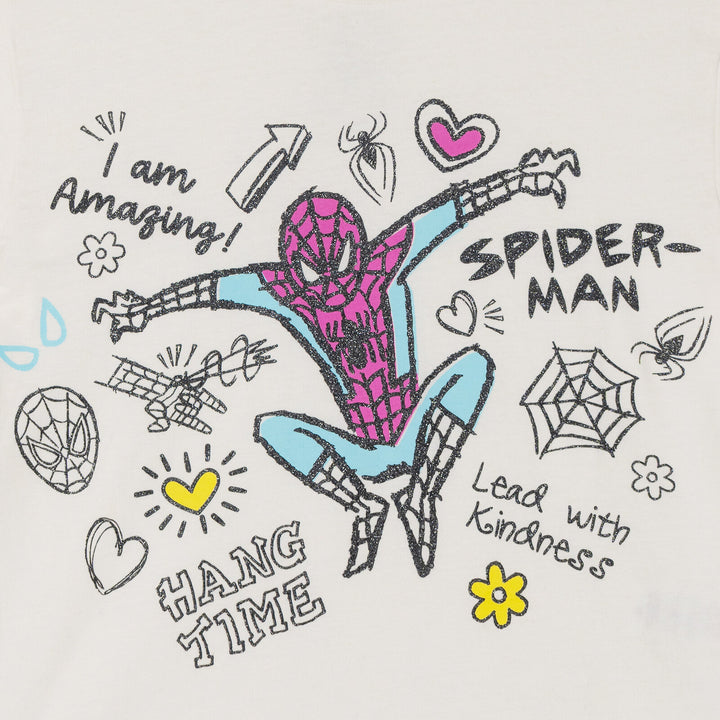 I am
Amazing!
SPIDER-
MAN
Lead with
Kindness
HANG
TIME